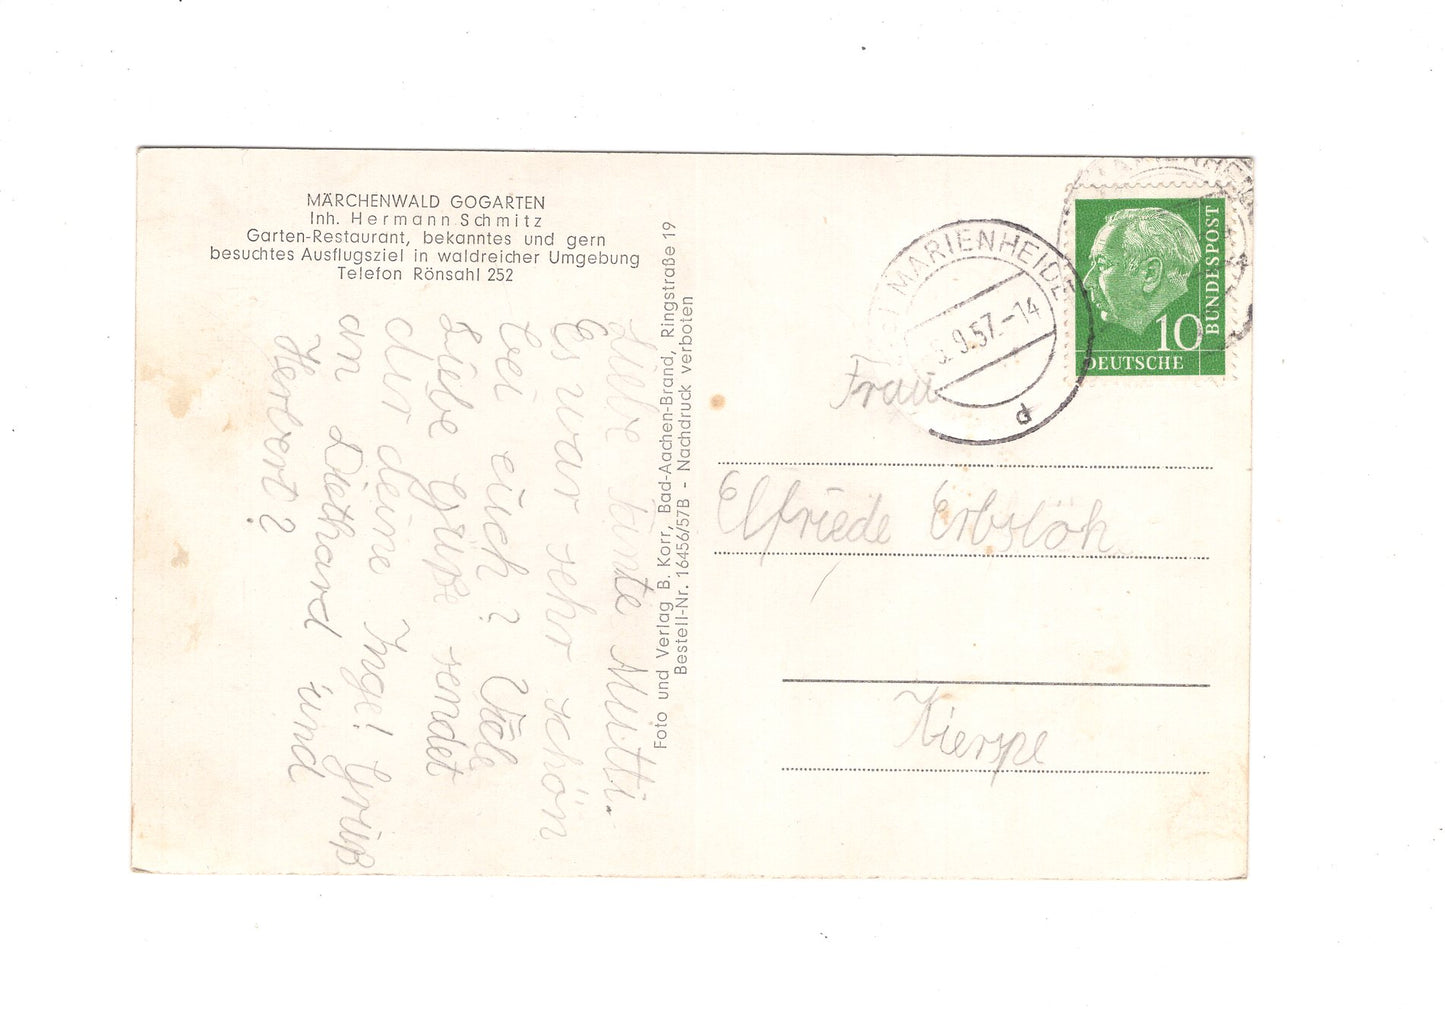 MÄRCHENWALD GOGARTEN
Inh. Hermann Schmitz
Garten-Restaurant, bekanntes und gern
besuchtes Ausflugsziel in waldreicher Umgebung
Telefon Rönsahl 252
Liebe Tante Mutti.
Es war sehr schön
bei euch? Viele
Liebe Grüße sendet
dir deine Inge! Gruß
an Diethard und
Herbert?
Foto und Verlag B. Korr, Bad-Aachen-Brand, Ringstraße 19
Bestell-Nr. 16456/57B - Nachdruck verboten
MARIENHEIDE
9.57.-14
d
10
DEUTSCHE
BUNDESPOST
Frau
Elfriede Erbslöh
Kierspe